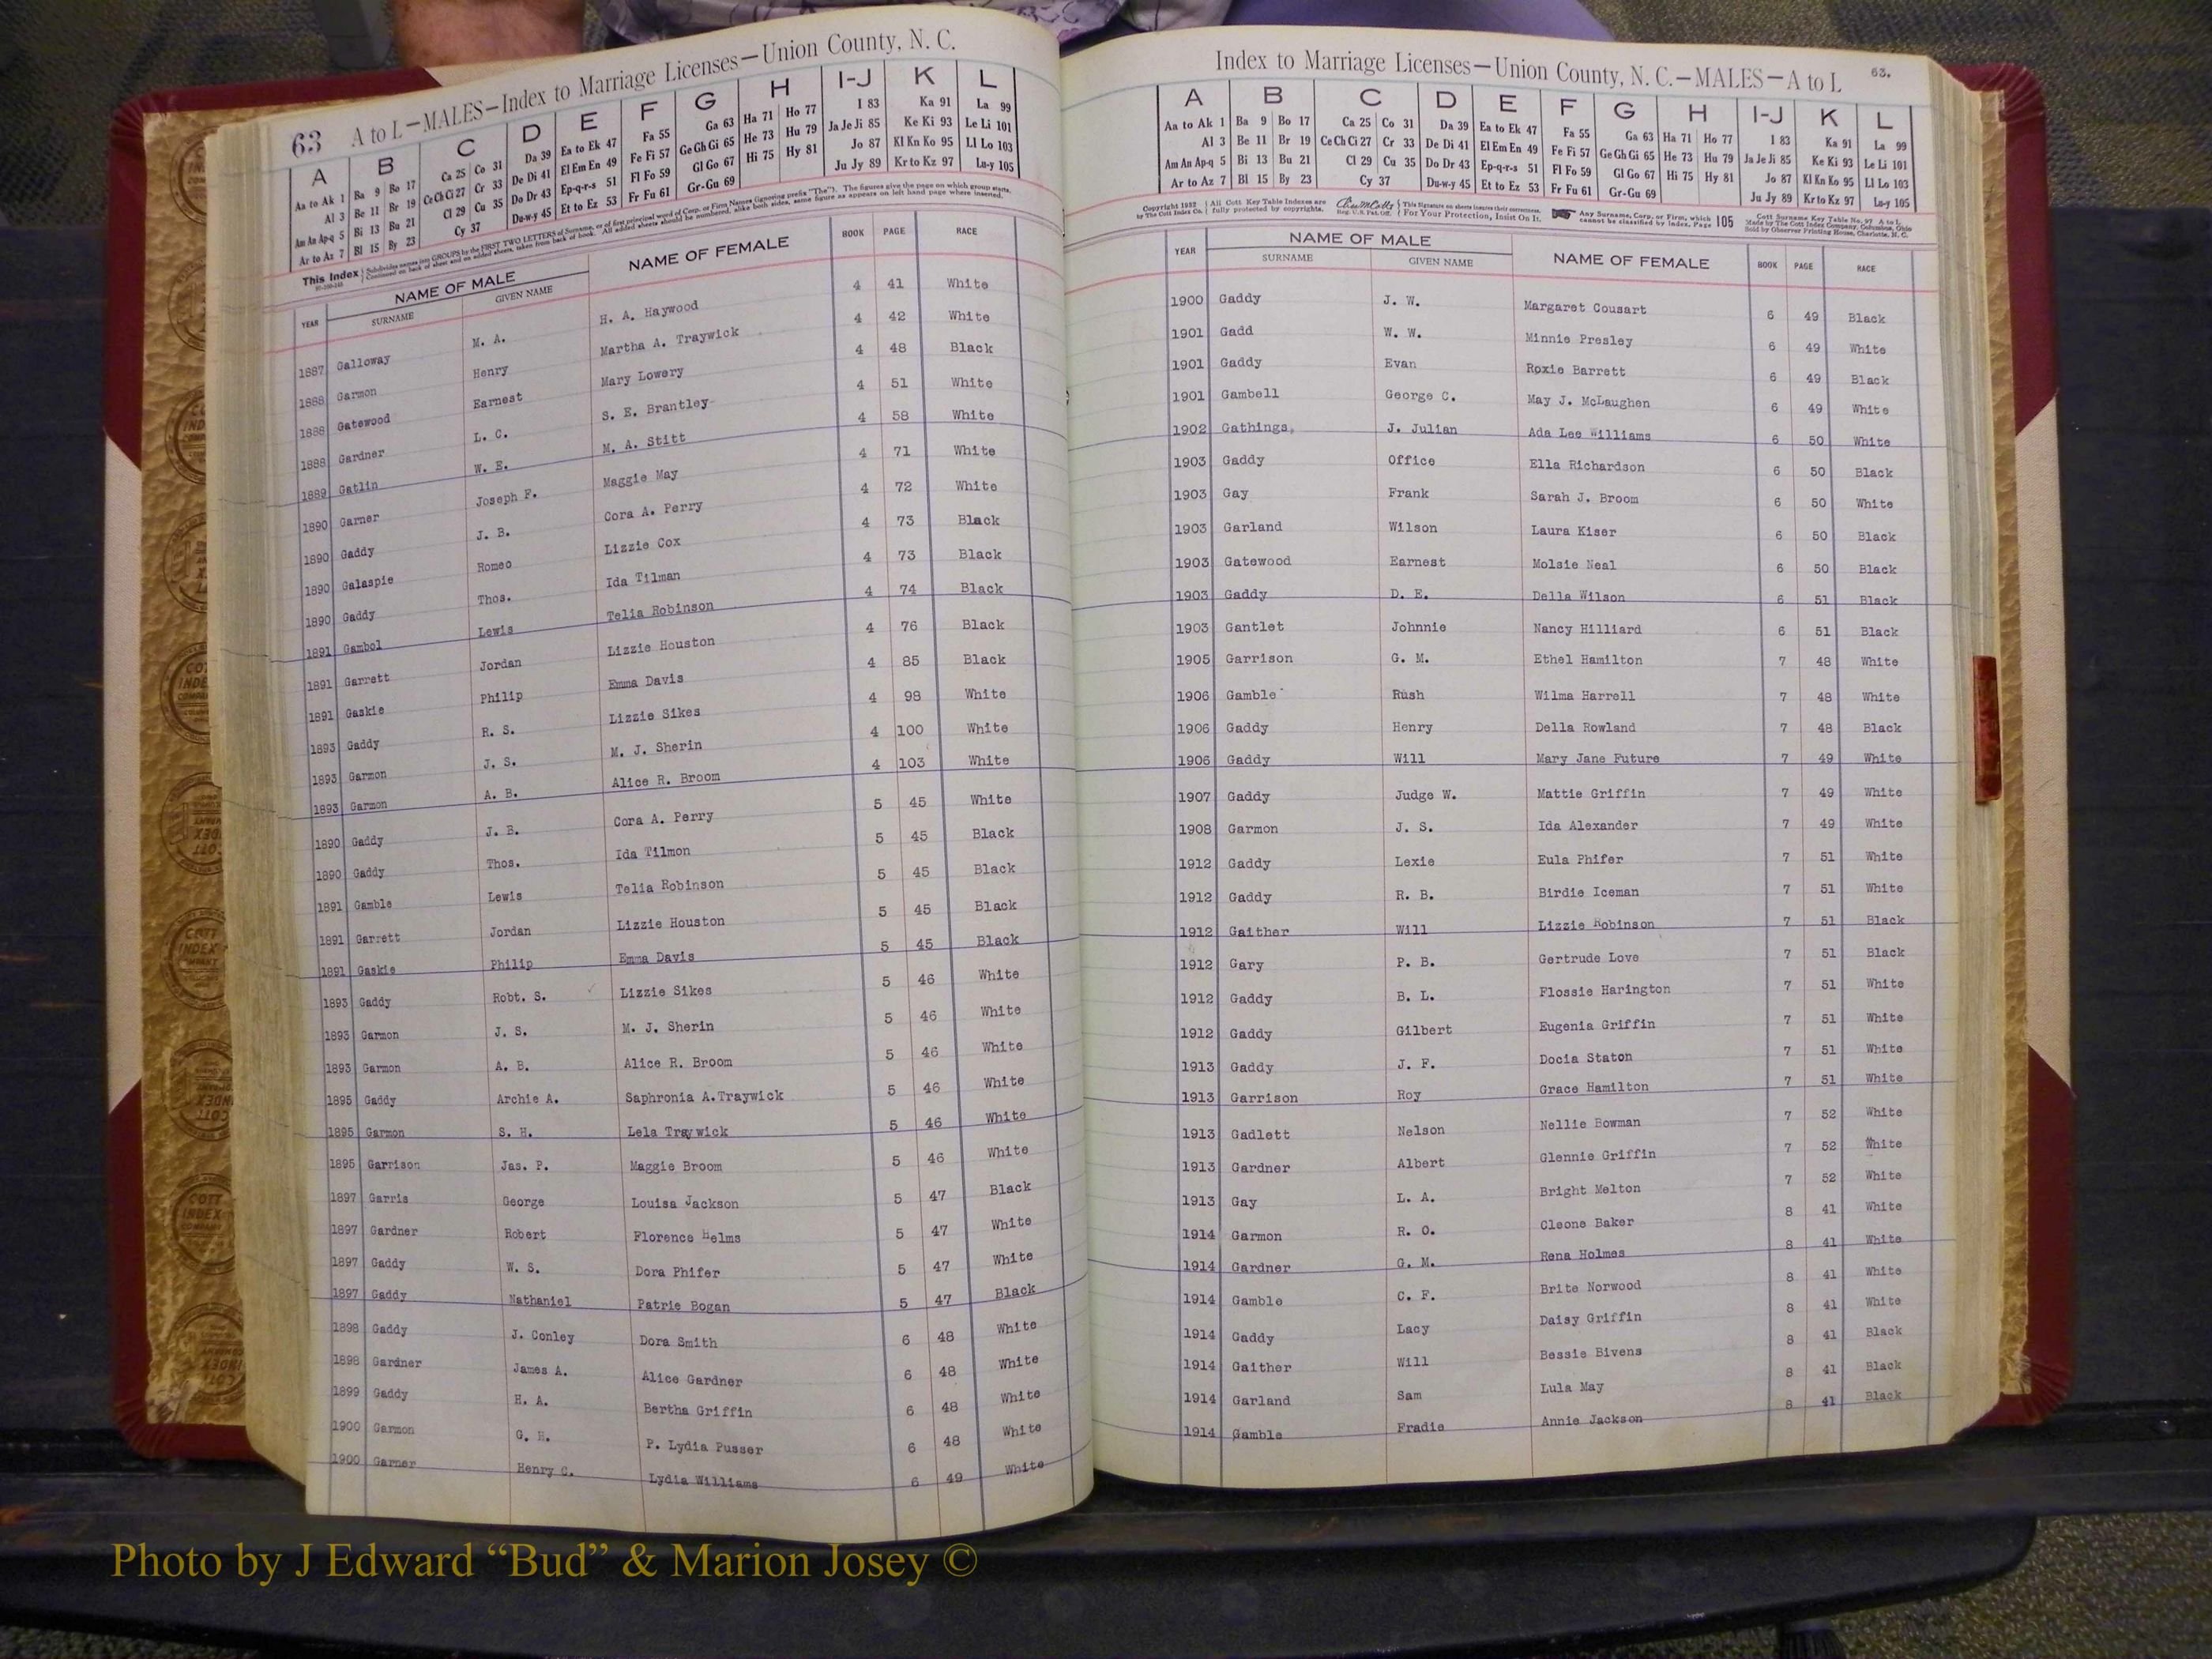 63 A to L—MALES—Index to Marriage Licenses—Union County, N. C.
A B C D E F G H I-J K L
Aa to Ak 1 Ba 9 Bo 17 Ca 25 Co 31 Da 39 Ea to Ek 47 Fa 55 Ga 63 Ha 71 Ho 77 I 83 Ka 91 La 99
Al 3 Be 11 Br 19 Ce Ch Ci 27 Cr 33 De Di 41 El Em En 49 Fe Fi 57 Ge Gh Gi 65 He 73 Hu 79 Ja Je Ji 85 Ke Ki 93 Le Li 101
Am An Ap-q 5 Bi 13 Bu 21 Cl 29 Cu 35 Do Dr 43 Ep-q-r-s 51 Fl Fo 59 Gl Go 67 Hi 75 Hy 81 Jo 87 Kl Kn Ko 95 Ll Lo 103
Ar to Az 7 Bl 15 By 23 Cy 37 Du-w-y 45 Et to Ez 53 Fr Fu 61 Gr-Gu 69 Ju Jy 89 Kr to Kz 97 Lu-y 105
This Index Subdivides names into GROUPS by the FIRST TWO LETTERS of Surname, or of first principal word of Corp. or Firm Names (ignoring prefix "The"). The figures give the page on which group starts.
Continued on back of sheet and on added sheets, taken from back of book. All added sheets should be numbered, alike both sides, same figure as appears on left hand page where inserted.
YEAR NAME OF MALE NAME OF FEMALE BOOK PAGE RACE
SURNAME GIVEN NAME
1887 Galloway M. A. H. A. Haywood 4 41 White
1888 Garmon Henry Martha A. Traywick 4 42 White
1888 Gatewood Earnest Mary Lowery 4 48 Black
1888 Gardner L. C. S. E. Brantley 4 51 White
1889 Gatlin W. E. M. A. Stitt 4 58 White
1890 Garner Joseph F. Maggie May 4 71 White
1890 Gaddy J. B. Cora A. Perry 4 72 White
1890 Galaspie Romeo Lizzie Cox 4 73 Black
1890 Gaddy Thos. Ida Tilman 4 73 Black
1891 Gambol Lewis Telia Robinson 4 74 Black
1891 Garrett Jordan Lizzie Houston 4 76 Black
1891 Gaskie Philip Emma Davis 4 85 Black
1893 Gaddy R. S. Lizzie Sikes 4 98 White
1893 Garmon J. S. M. J. Sherin 4 100 White
1893 Garmon A. B. Alice R. Broom 4 103 White
1890 Gaddy J. B. Cora A. Perry 5 45 White
1890 Gaddy Thos. Ida Tilmon 5 45 Black
1891 Gamble Lewis Telia Robinson 5 45 Black
1891 Garrett Jordan Lizzie Houston 5 45 Black
1891 Gaskie Philip Emma Davis 5 45 Black
1893 Gaddy Robt. S. Lizzie Sikes 5 46 White
1893 Garmon J. S. M. J. Sherin 5 46 White
1893 Garmon A. B. Alice R. Broom 5 46 White
1895 Gaddy Archie A. Saphronia A.Traywick 5 46 White
1895 Garmon S. H. Lela Traywick 5 46 White
1895 Garrison Jas. P. Maggie Broom 5 46 White
1897 Garris George Louisa Jackson 5 47 Black
1897 Gardner Robert Florence Helms 5 47 White
1897 Gaddy W. S. Dora Phifer 5 47 White
1897 Gaddy Nathaniel Patrie Bogan 5 47 Black
1898 Gaddy J. Conley Dora Smith 6 48 White
1898 Gardner James A. Alice Gardner 6 48 White
1899 Gaddy H. A. Bertha Griffin 6 48 White
1900 Garmon G. H. P. Lydia Pusser 6 48 White
1900 Garner Henry C. Lydia Williams 6 49 White
Index to Marriage Licenses—Union County, N. C.—MALES—A to L 63.
A B C D E F G H I-J K L
Aa to Ak 1 Ba 9 Bo 17 Ca 25 Co 31 Da 39 Ea to Ek 47 Fa 55 Ga 63 Ha 71 Ho 77 I 83 Ka 91 La 99
Al 3 Be 11 Br 19 Ce Ch Ci 27 Cr 33 De Di 41 El Em En 49 Fe Fi 57 Ge Gh Gi 65 He 73 Hu 79 Ja Je Ji 85 Ke Ki 93 Le Li 101
Am An Ap-q 5 Bi 13 Bu 21 Cl 29 Cu 35 Do Dr 43 Ep-q-r-s 51 Fl Fo 59 Gl Go 67 Hi 75 Hy 81 Jo 87 Kl Kn Ko 95 Ll Lo 103
Ar to Az 7 Bl 15 By 23 Cy 37 Du-w-y 45 Et to Ez 53 Fr Fu 61 Gr-Gu 69 Ju Jy 89 Kr to Kz 97 Lu-y 105
Copyright 1932 All Cott Key Table Indexes are This signature on sheets insures their correctness. Any Surname, Corp. or Firm, which 105 Cott Surname Key Table No. 97 A to L
by The Cott Index Co. fully protected by copyrights. Reg. U.S. Pat. Off. For Your Protection, Insist On It. cannot be classified by index, Page Made by The Cott Index Company, Columbus, Ohio
Sold by Observer Printing House, Charlotte, N. C.
YEAR NAME OF MALE NAME OF FEMALE BOOK PAGE RACE
SURNAME GIVEN NAME
1900 Gaddy J. W. Margaret Cousart 6 49 Black
1901 Gadd W. W. Minnie Presley 6 49 White
1901 Gaddy Evan Roxie Barrett 6 49 Black
1901 Gambell George C. May J. McLaughen 6 49 White
1902 Gathings. J. Julian Ada Lee Williams 6 50 White
1903 Gaddy Office Ella Richardson 6 50 Black
1903 Gay Frank Sarah J. Broom 6 50 White
1903 Garland Wilson Laura Kiser 6 50 Black
1903 Gatewood Earnest Molsie Neal 6 50 Black
1903 Gaddy D. E. Della Wilson 6 51 Black
1903 Gantlet Johnnie Nancy Hilliard 6 51 Black
1905 Garrison G. M. Ethel Hamilton 7 48 White
1906 Gamble Rush Wilma Harrell 7 48 White
1906 Gaddy Henry Della Rowland 7 48 Black
1906 Gaddy Will Mary Jane Future 7 49 White
1907 Gaddy Judge W. Mattie Griffin 7 49 White
1908 Garmon J. S. Ida Alexander 7 49 White
1912 Gaddy Lexie Eula Phifer 7 51 White
1912 Gaddy R. B. Birdie Iceman 7 51 White
1912 Gaither Will Lizzie Robinson 7 51 Black
1912 Gary P. B. Gertrude Love 7 51 Black
1912 Gaddy B. L. Flossie Harington 7 51 White
1912 Gaddy Gilbert Eugenia Griffin 7 51 White
1913 Gaddy J. F. Docia Staton 7 51 White
1913 Garrison Roy Grace Hamilton 7 51 White
1913 Gadlett Nelson Nellie Bowman 7 52 White
1913 Gardner Albert Glennie Griffin 7 52 White
1913 Gay L. A. Bright Melton 7 52 White
1914 Garmon R. O. Cleone Baker 8 41 White
1914 Gardner G. M. Rena Holmes 8 41 White
1914 Gamble C. F. Brite Norwood 8 41 White
1914 Gaddy Lacy Daisy Griffin 8 41 White
1914 Gaither Will Bessie Bivens 8 41 Black
1914 Garland Sam Lula May 8 41 Black
1914 Gamble Fradie Annie Jackson 8 41 Black
Photo by J Edward “Bud” & Marion Josey ©